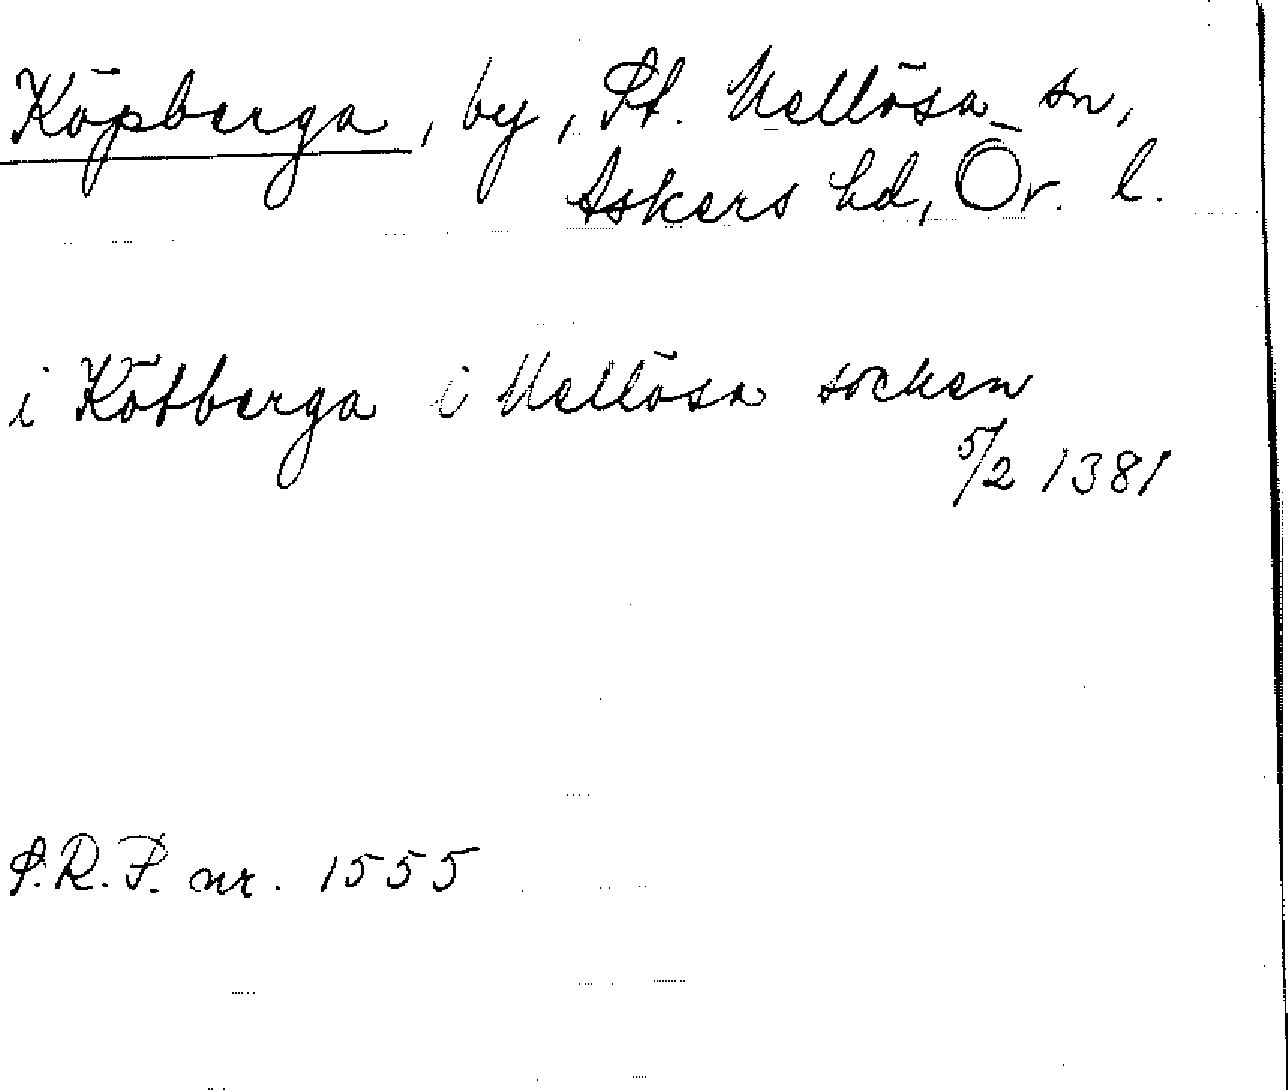 Köpberga, by, St. Mellösa sn,
Askers hd, Ör. l.
i Kötberga i Mellösa socken
5/2 1381
S.R.P. nr. 1555